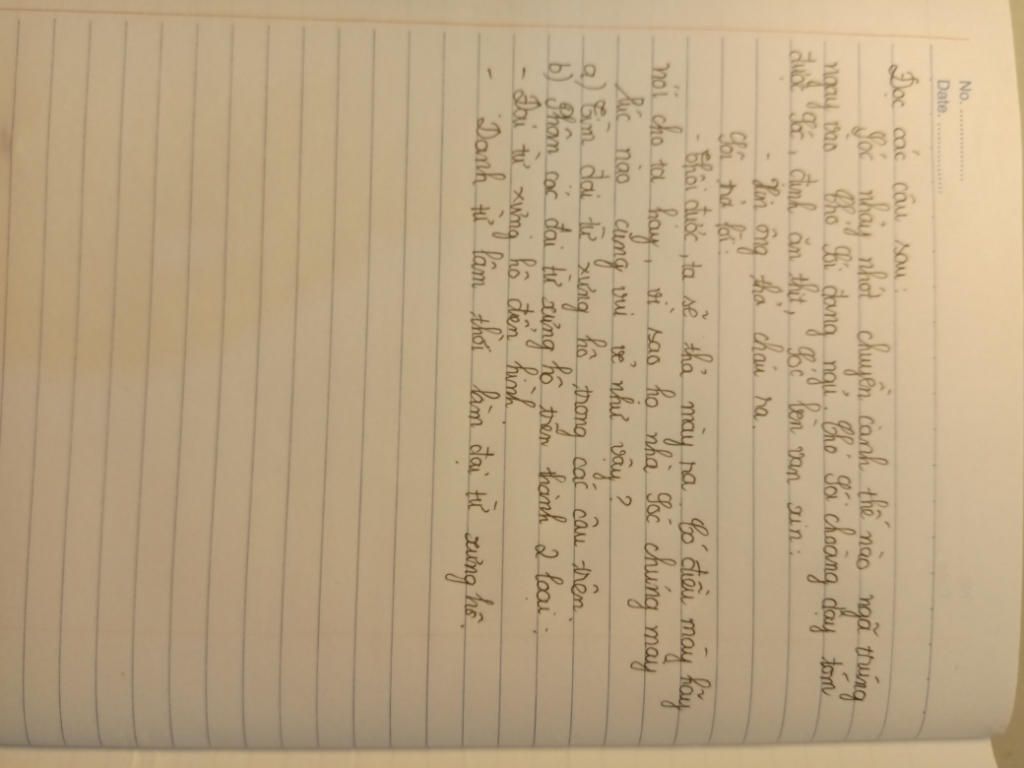 No. ...............
Date. ...............
Đọc các câu sau:
Sóc nhảy nhót chuyền cành thế nào ngã trúng
ngay vào Chó Sói đang ngủ. Chó Sói choàng dậy tóm
được Sóc, định ăn thịt, Sóc bèn van xin:
- Xin ông thả cháu ra.
Sói trả lời:
- Thôi được, ta sẽ thả mày ra. Có điều mày hãy
nói cho ta hay, vì sao họ nhà Sóc chúng mày
lúc nào cũng vui vẻ như vậy?
a) Tìm đại từ xưng hô trong các câu trên.
b) Phân các đại từ xưng hô trên thành 2 loại:
- Đại từ xưng hô điển hình.
- Danh từ lâm thời làm đại từ xưng hô.